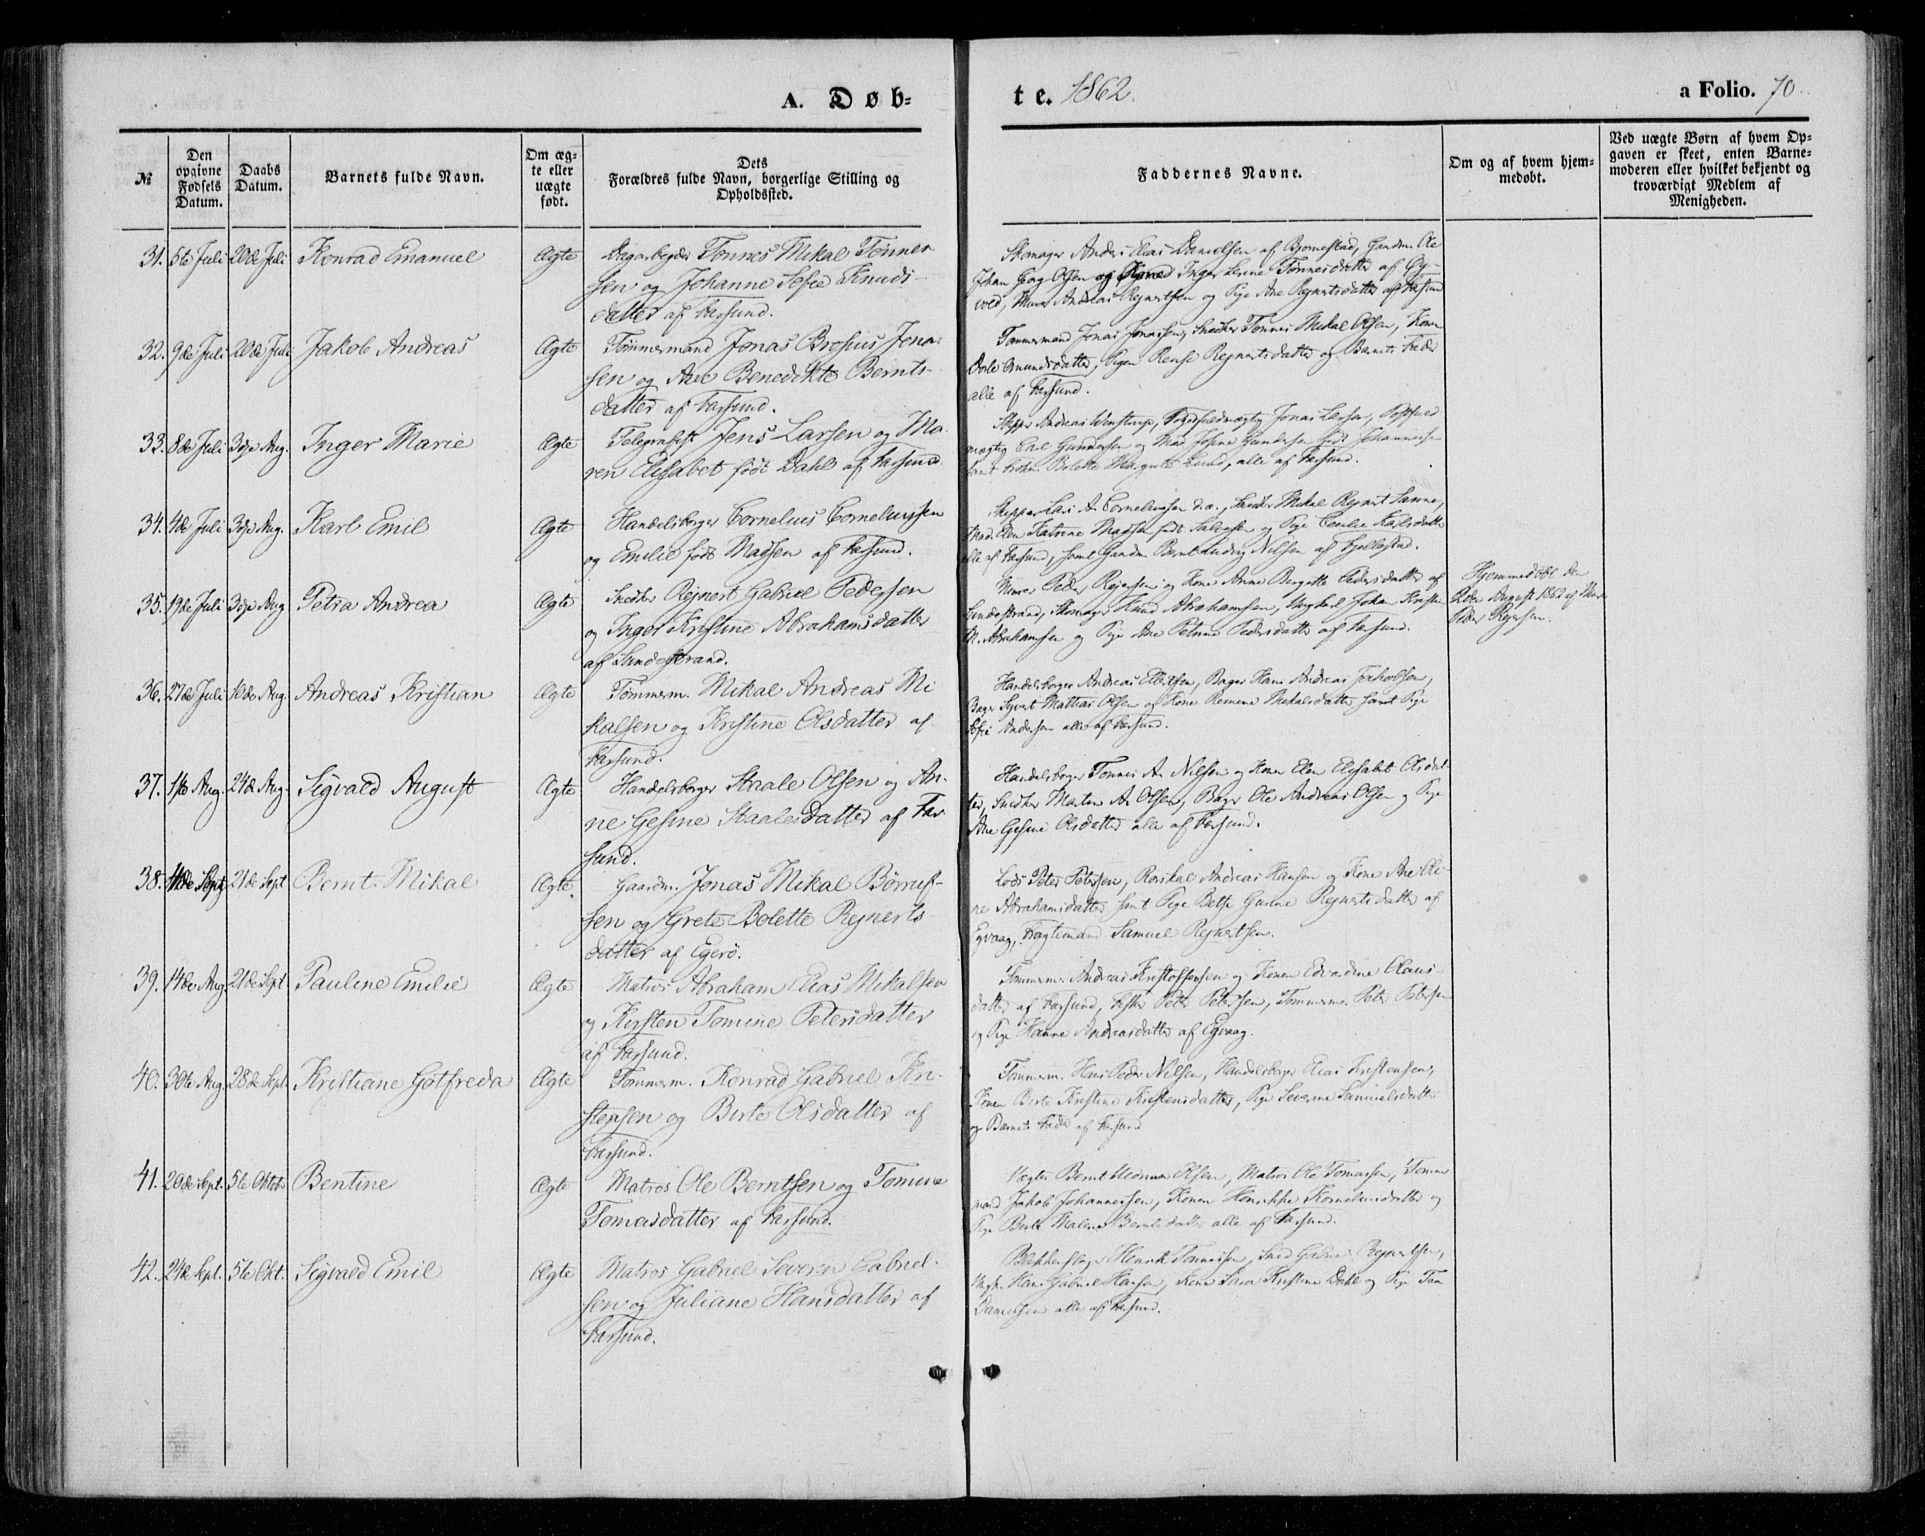 A. Døb-
te. 1862.
a Folio. 70.
№
Den opgivne Fødsels Datum.
Daabs Datum.
Barnets fulde Navn.
Om ægte eller uægte født.
Dets Forældres fulde Navn, borgerlige Stilling og Opholdssted.
Faddernes Navne.
Om og af hvem hjemmedøbt.
Ved uægte Børn af hvem Opgaven er skeet, enten Barnemoderen eller hvilket bekjendt og troværdigt Medlem af Menigheden.
31. 5te Juli 20de Juli Konrad Emanuel Ægte Dagarbejder Tønnes Mikal Tønnes-
sen og Johanne Sofie Knuds-
datter af Farsund.
Skomager Anders Elias Danielsen af Bjørnestad, Gaardm.
Johan Georg Olsen og Kone Inger Serine Tønnesdatter af
Murer Andreas Rejnertsen og Pige Ane Rejnertsdatter af Farsund
32. 9de Juli 20de Juli Jakob Andreas Ægte Tømmermand Jonas Brosius Jona-
sen og Ane Benedikte Bernts-
datter af Farsund.
Tømmermand Jonas Jonassen, Snedker Tønnes Mikal Olsen, Kone
Dorte Amundsdatter, Pigen Rejnertsdatter og Barnets Fader
alle af Farsund.
33. 8de Juli 3die Aug. Inger Marie Ægte Telegrafist Jens Larsen og Ma-
ren Elisabet født Dahl af Farsund.
Skipper Andreas Jonas Larsen, Postfuld
mægtig Carl Gundersen og Mad. Josine Gundersen født Johannesen
samt Frøken Bolette Margrete Lund, alle af Farsund.
34. 4de Juli 3die Aug. Karl Emil Ægte Handelsborger Cornelius Corneliussen
og Emilie født Madsen af Farsund.
Skipper Lars A. Corneliussen, Snedker Mikal Rejnert Sanne,
Mad. Elen Katrine Madsen født Salvesen og Pige Cecilie Karlsdatter
alle af Farsund, samt Gaardm. Bernt Ludvig Nilsen af
35. 19de Juli 3die Aug Petra Andrea Ægte Snedker Rejnert Gabriel Pedersen
og Inger Kristine Abrahamsdatter
af Lundestrand.
Murer Peder Rejersen og Kone Anne Bergitte Pedersdatter af
Lundestrand, Skomager Knud Abrahamsen, Ungkarl Johan Kristen
M. Abrahamsen og Pige Ane Petrine Pedersdatter af Farsund.
Hjemmedøbt den
2den August 1862 af Murer
Peder Rejersen.
36. 27de Juli 10de Aug. Andreas Kristian Ægte Tømmerm. Mikal Andreas Mi
kalsen og Kristine Olsdatter af
Farsund.
Handelsborger Andreas Ellefsen, Bager Hans Andreas Jakobsen,
Bager Syvert Mathias Olsen og Kone Mikalsdatter samt Pige
Sofie Andersen alle af Farsund.
37. 1ste Aug. 24de Aug. Sigvald August Ægte Handelsborger Staale Olsen og An-
ne Gesine Staalesdatter af Far
sund.
Handelsborger Tønnes A. Nilsen og Kone Elen Elisabet Olsdat-
ter, Snedker Morten A. Olsen, Bager Ole Andreas Olsen og Pige
Ane Gesine Olsdatter alle af Farsund.
38. Sept. 21de Sept Bernt Mikal Ægte Gaardm. Jonas Mikal Børruf-
sen og Grete Bolette Rejnerts-
datter af Egerø.
Lods Peter Petersen, Andreas Hansen og Kone Ane Oli-
ne Abrahamsdatter samt Pige Betsy Gurine Rejnertsdatter af
Egvaag, Samuel Rejnertsen.
39. 14de Aug. 21de Sept Pauline Emilie Ægte Matros Abraham Elias Mikalsen
og Kirsten Tomine Petersdatter
af Farsund.
Tømmerm. Andreas Kristoffersen og Konen Edvardine Claus-
datter af Farsund, Fisker Peter Petersen, Tømmerm. Peter Petersen
og Pige Hanne Andreasdatter af Egvaag.
40. 30te Aug. 28de Sept. Kristiane Gotfreda Ægte Tømmerm. Konrad Gabriel Kri-
stensen og Birte Olsdatter af
Farsund.
Tømmerm. Hans Peder Nilsen, Handelsborger Elias Kristensen,
Konen Birte Kristine Kristensdatter, Pige Severine Samuelsdatter
og Barnets Fader af Farsund
41. 20de Sept. 5te Oktob Bentine Ægte Matros Ole Berntsen og Tomine
Tomasdatter af Farsund.
Vægter Bernt Olsen, Matros Ole Tomassen, Tømmer
mand Jakob Johannessen, Konen Henrikke Korneliusdatter og
Pige Birte Malene Berntsdatter alle af Farsund.
42. 21de Sept. 5te Okt. Sigvald Emil Ægte Matros Gabriel Severin Gabriel-
sen og Juliane Hansdatter af
Farsund.
Blikkenslager Henrik Tønnessen, Smed Gabriel Rejnertsen,
Ungk. Hans Gabriel Hansen, Kone Sara Kristine Dahl og Pige
Danielsen alle af Farsund.